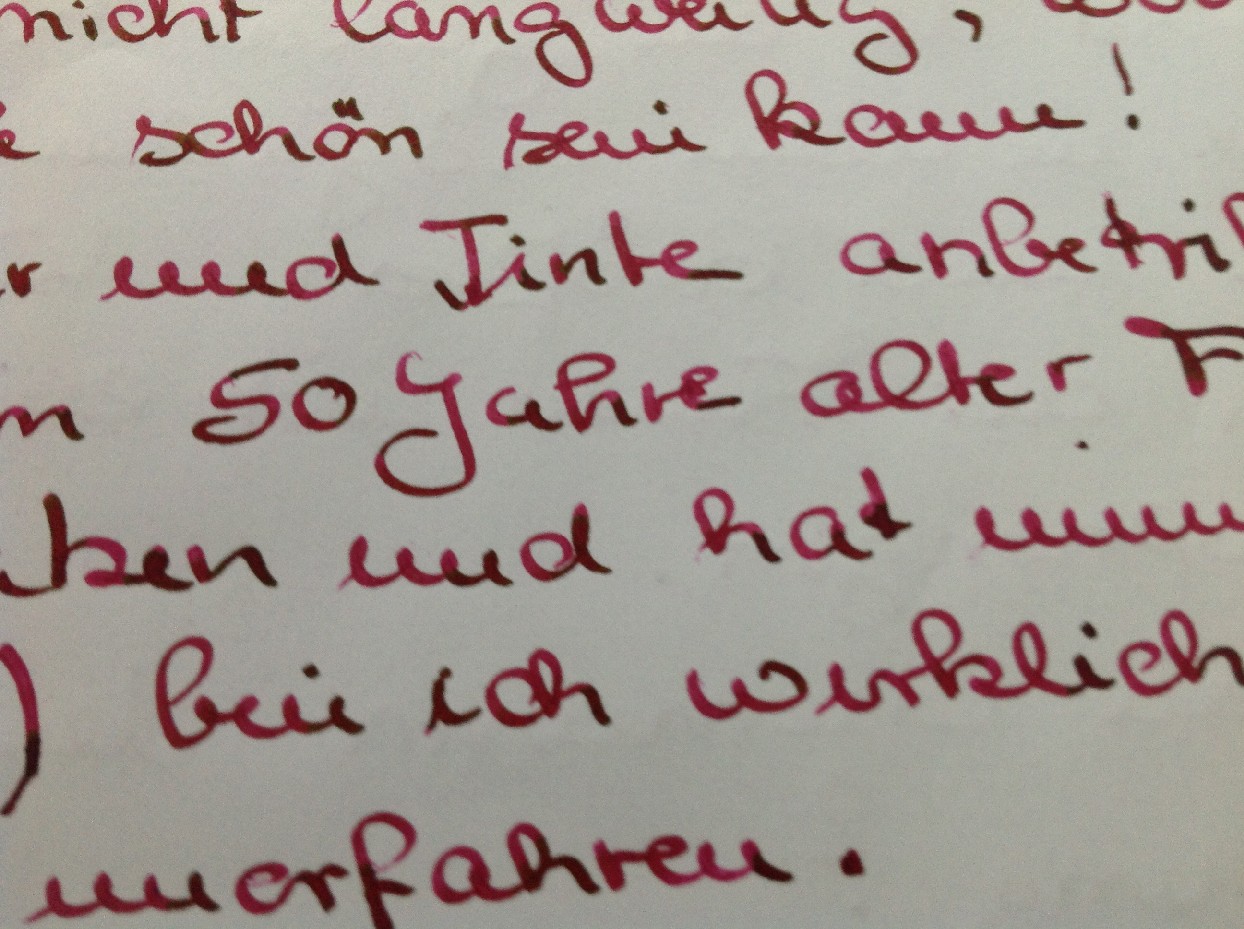 nicht langweilig,
schön sein kann!
und Tinte
50 Jahre alter
und hat
) bin ich wirklich
unerfahren.